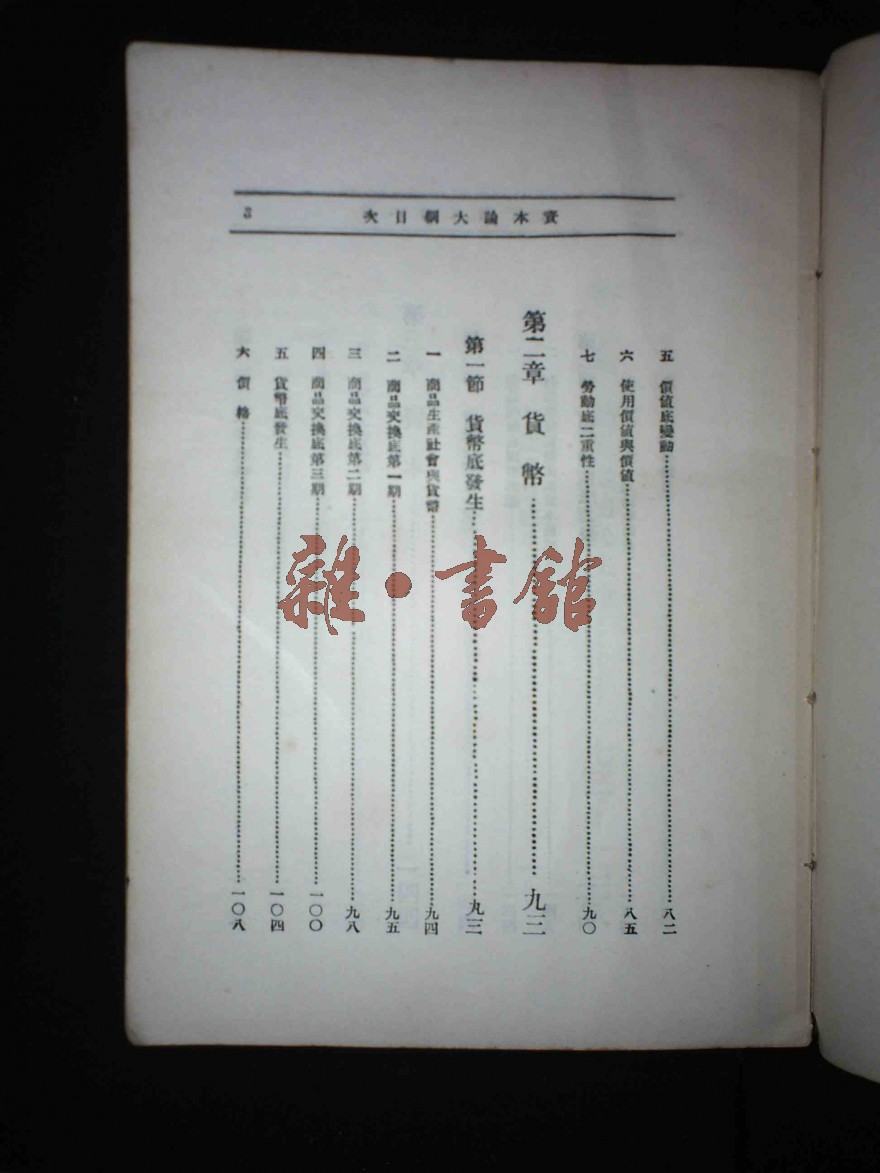 資本論大綱目次
3
五 價值底變動……八二
六 使用價值與價值……八五
七 勞動底二重性……九〇
第二章 貨幣……九三
第一節 貨幣底發生……九三
一 商品生產社會與貨幣……九四
二 商品交換底第一期……九五
三 商品交換底第二期……九八
四 商品交換底第三期……一〇〇
五 貨幣底發生……一〇四
六 價格……一〇八
雜·書館